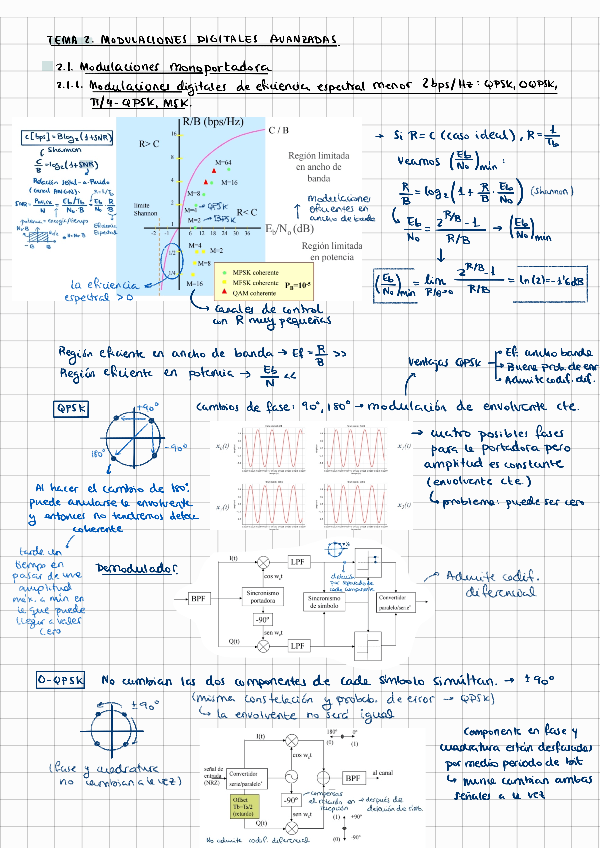 TEMA 2. MODULACIONES DIGITALES AVANZADAS.
2.1. Modulaciones monoportadora
2.1.1. Modulaciones digitales de eficiencia espectral menor 2bps/Hz: QPSK, OQPSK,
π/4-QPSK, MSK.
C[bps] = B log₂(1+SNR)
Shannon
C/B = log₂(1+SNR)
Relación señal-a-Ruido
(canal AWGN):
potencia = energía/tiempo
Eficiencia
Espectral
R/B (bps/Hz)
C / B
16
8
4
2
1
1/2
1/4
R> C
R< C
límite
Shannon
M=64
M=16
M=8
M=4
QPSK
M=2
BPSK
-2 -1
6 12 18 24 30 36
E_b/N_0 (dB)
M=4
M=2
M=8
M=16
Región limitada
en ancho de
banda
Región limitada
en potencia
MPSK coherente
MFSK coherente
QAM coherente
P_B=10⁻⁵
Modulaciones
eficientes en
ancho de banda
La eficiencia
espectral > 0
canales de control
con R muy pequeñas
→ Si R = C (caso ideal), R = 1/Tb
Veamos (Eb/No)min :
R/B = log₂(1 + R/B · Eb/No) (Shannon)
Eb/No = (2^(R/B) - 1)/(R/B) → (Eb/No)min
(Eb/No)min = lim R/B→0 (2^(R/B) - 1)/(R/B) = ln(2) = -1'6dB
Región eficiente en ancho de banda → Ef = R/B >>
Región eficiente en potencia → Eb/N <<
Ventajas QPSK
Ef. ancho banda
Buena prob. de error
Admite codif. dif.
QPSK
+90°
180°
-90°
Cambios de fase: 90°, 180° → modulación de envolvente cte.
x₁(t)
x₂(t)
→ cuatro posibles fases
para la portadora pero
amplitud es constante
(envolvente cte.)
problema: puede ser cero
Al hacer el cambio de 180°
puede anularse la envolvente
y entonces no tendremos detec.
coherente
tarda un
tiempo en
pasar de una
amplitud
máx. a mín en
la que puede
llegar a valer
cero
Demodulador
BPF
I(t)
LPF
cos w_c t
Sincronismo
portadora
-90°
sen w_c t
Q(t)
LPF
Sincronismo
de símbolo
Convertidor
paralelo/serie
Admite codif.
diferencial
O-QPSK
No cambian las dos componentes de cada símbolo simultan. → ±90°
(misma constelación y probab. de error → QPSK)
la envolvente no será igual
±90°
(fase y cuadratura
no cambian a la vez)
señal de
entrada
(NRZ)
Convertidor
serie/paralelo
Offset
Tb=Ts/2
(retardo)
I(t)
cos w_c t
-90°
sen w_c t
Q(t)
BPF
al canal
180° 0°
(0) (1)
(1) +90°
(0) -90°
compensas
el retardo en
recepción
después de
detección de símb.
No admite codif. diferencial
Componente en fase y
cuadratura están desfasadas
por medio periodo de bit
nunca cambian ambas
señales a la vez